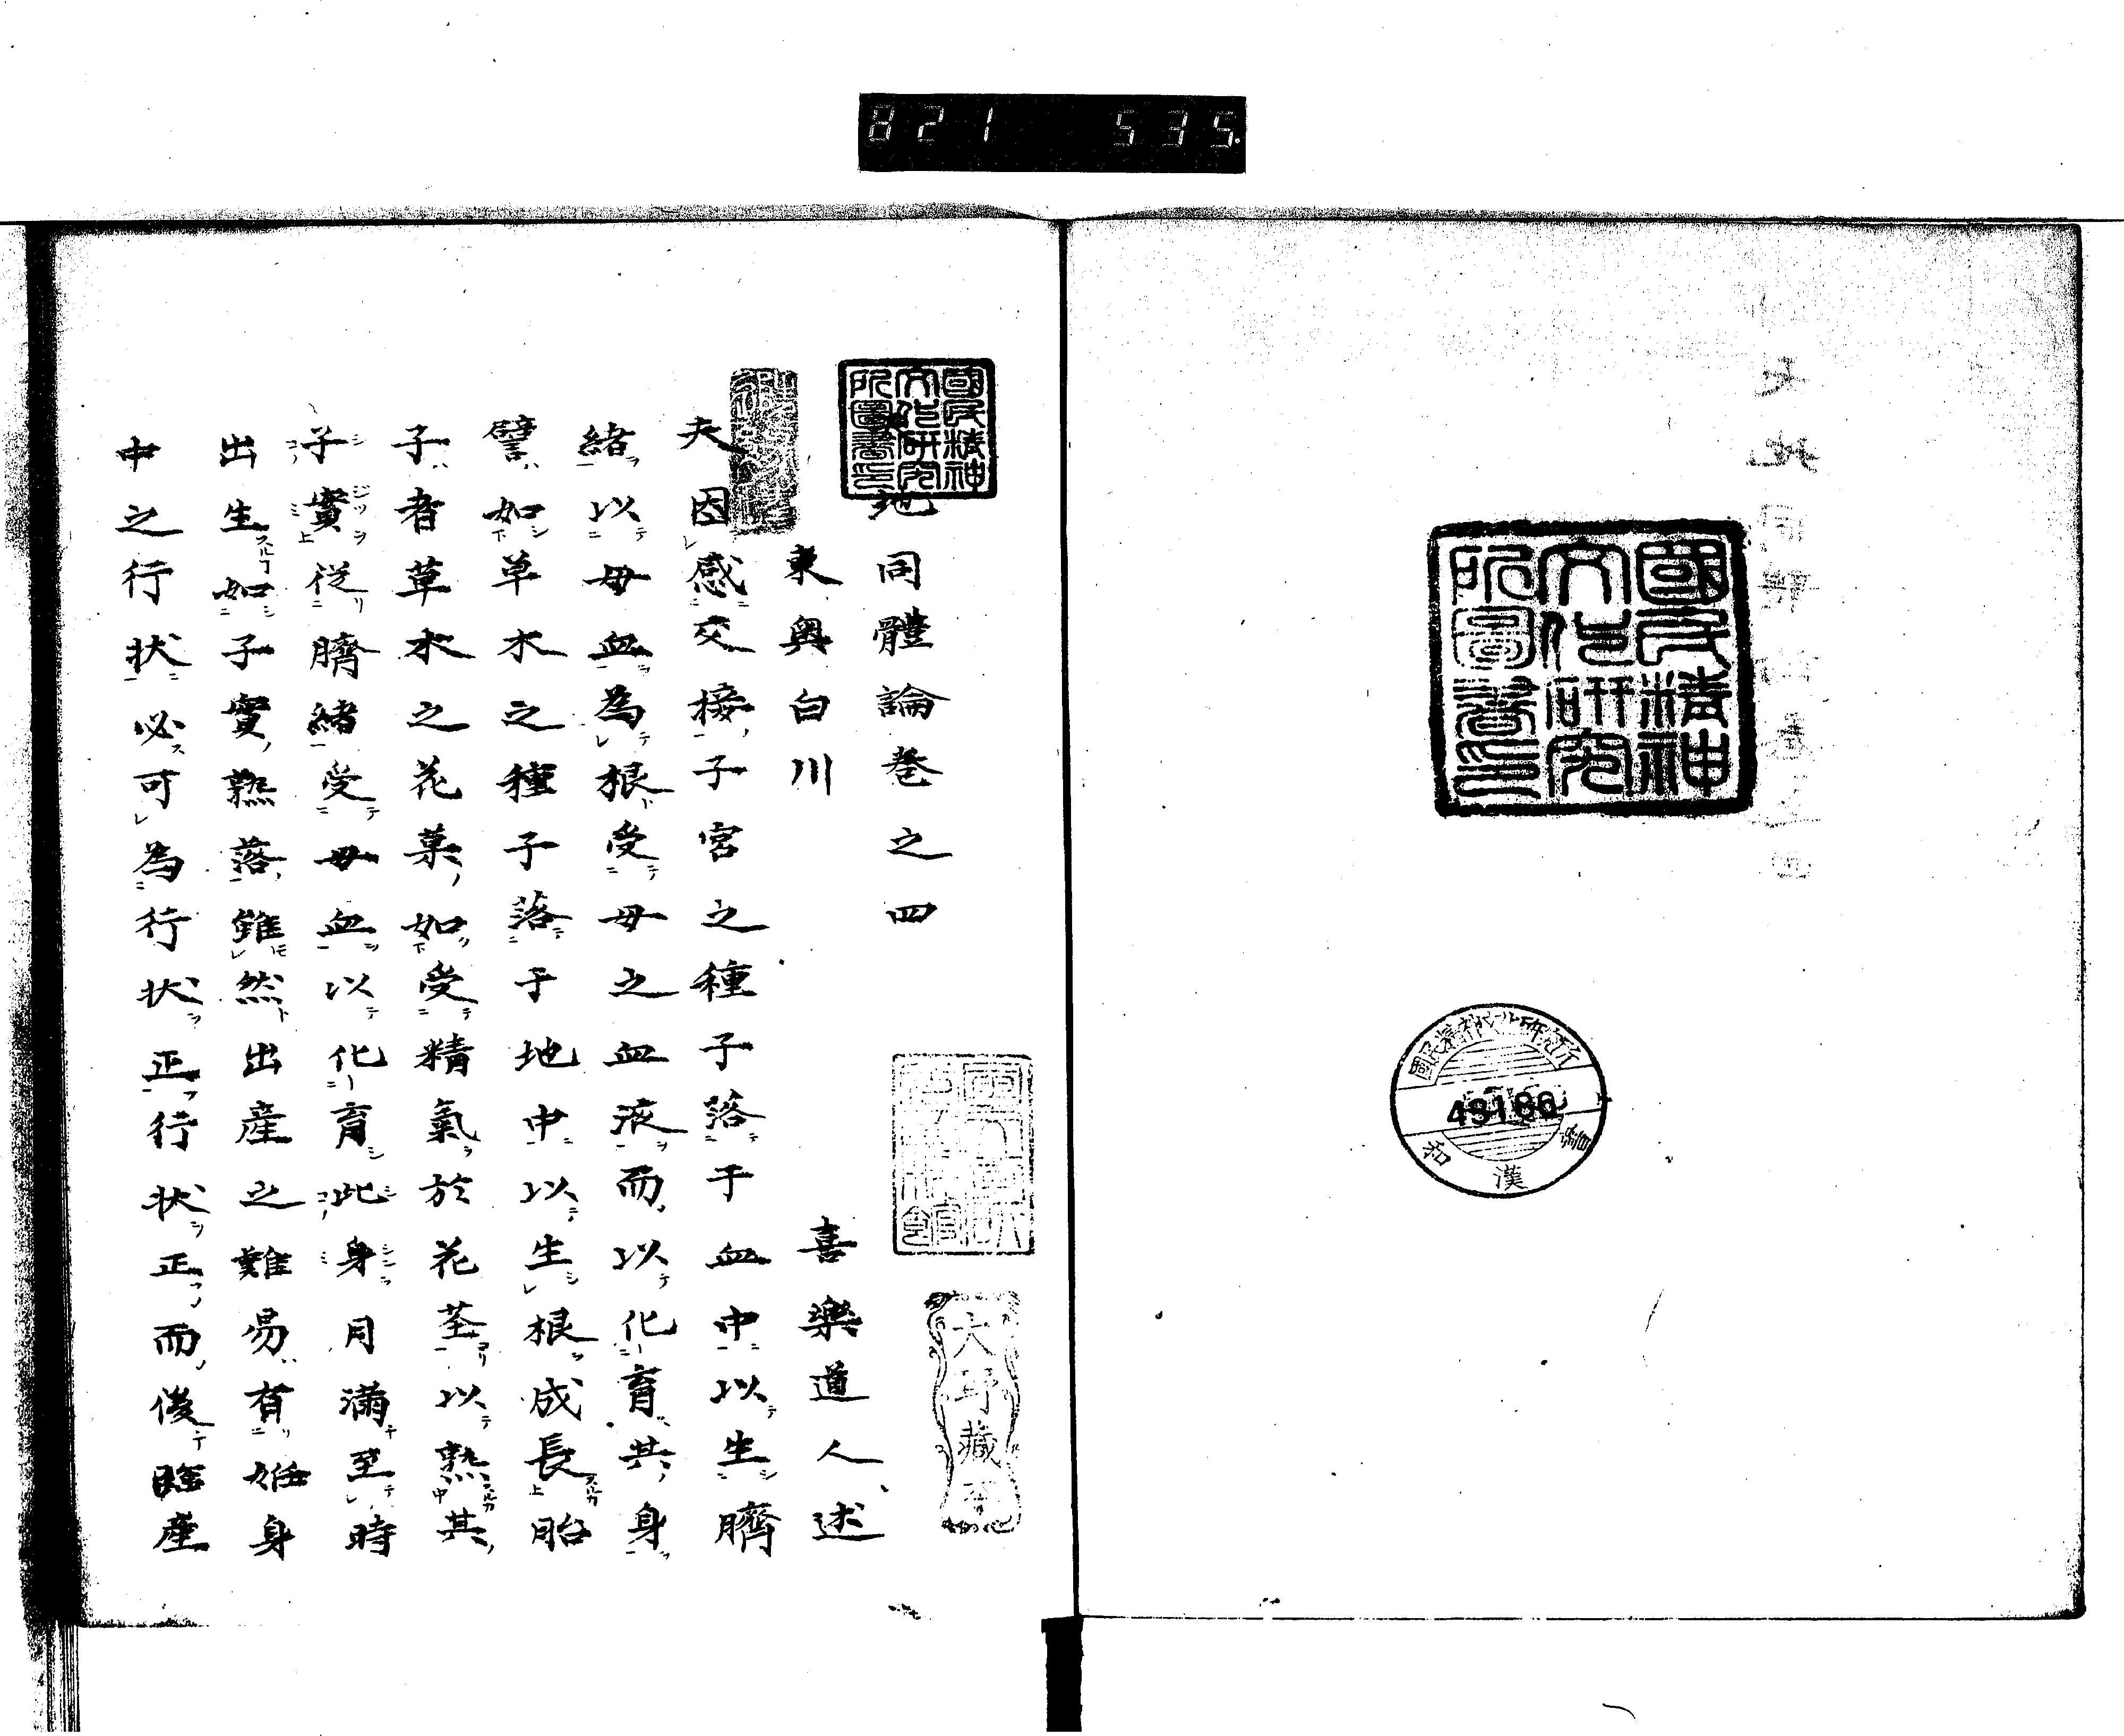 821 535.
國民精神
文化研究
所圖書印
國民精神文化研究所
和漢書
國民精神
文化研究
所圖書印
地同體論巻之四
東奥白川 喜樂道人述
夫因感交接子宮之種子落于血中以生臍
緒以母血為根受母之血液而以化育其身
譬如草木之種子落于地中以生根成長胎
子者草木之花菓如受精氣於花茎以熟其
子實従臍緒受母血以化育此身月満至時
出生如子實熟落雖然出産之難易有姙身
中之行状必可為行状正行状正而後臨産
大野藏